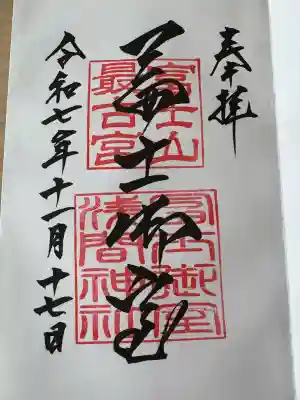 奉拝
富士山
最古宮
冨士御室
冨士御室
浅間神社
令和七年十一月十七日